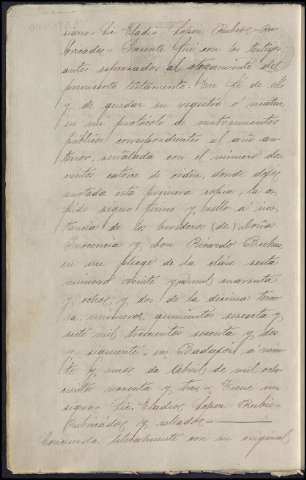 ciano = Lic Eladio Lopez Rubio = Ru-
bricados = Presente fuí con los testigos
antes referenciados al otorgamiento del
presente testamento. En fé de ello
y de quedar su registro ó matriz
en mi protocolo de instrumentos
públicos correspondientes al año an-
terior, señalada con el número dos-
cientos catorce de orden, donde dejo
anotada esta primera copia, la ex-
pido signo firmo y sello á ins-
tancia de los herederos de Doña
Inocencia y Don Ricardo
en un pliego de la clase sexta
número veinte y mil cuarenta
y ocho, y dos de la décima ter-
cera, números, quinientos sesenta y
siete mil trescientos sesenta y dos
y siguiente = en Badajoz á vein-
te y uno de Abril de mil ocho-
cientos noventa y tres = Tiene un
signo = Lic. Eladio Lopez Rubio =
Rubricados, y sellados =
Concuerda literalmente con su original